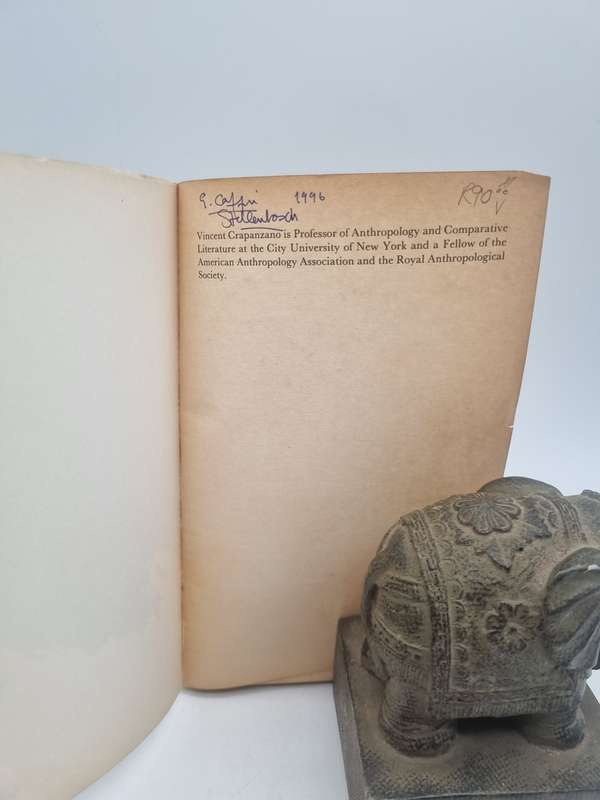 G. Caffri 1996
Stellenbosch
R90.00
V
Vincent Crapanzano is Professor of Anthropology and Comparative
Literature at the City University of New York and a Fellow of the
American Anthropology Association and the Royal Anthropological
Society.